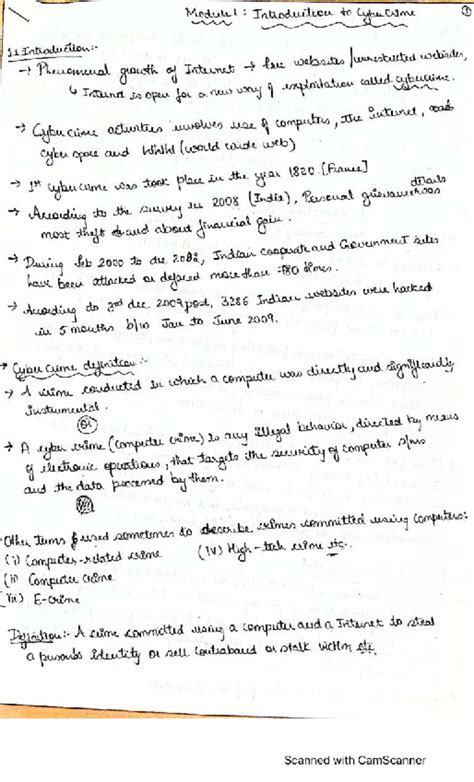 Module 1 : Introduction to Cyber Crime ①
1.1 Introduction:-
→ Phenomenal growth of Internet → free websites / unrestricted websites,
↳ Internet is open for a new way of exploitation called cybercrime.
→ Cyber crime activities involves use of computers, the internet,
cyber space and WWW (world wide web)
→ 1st cyber crime was took place in the year 1820. [France]
→ According to the survey in 2008 (India), Personal details
most theft and about financial gain.
→ During feb 2000 to dec 2002, Indian cooperate and Government sites
have been attacked or defaced more than 780 times.
→ According do 3rd dec 2009 post, 3286 Indian websites were hacked
in 5 months b/w Jan to June 2009.
* Cyber Crime definition:-
→ A crime conducted in which a computer was directly and significantly
instrumental.
(or)
→ A cyber crime (computer crime) is any illegal behavior, directed by means
of electronic operations, that targets the security of computer s/ms
and the data processed by them.
Other terms used sometimes to describe crimes committed using computers:
(i) Computer-related crime (iv) High-tech crime etc.
(ii) Computer Crime
(iii) E-crime
Definition:- A crime committed using a computer and a Internet to steal
a person's identity or sell contraband or stalk victim etc.
Scanned with CamScanner